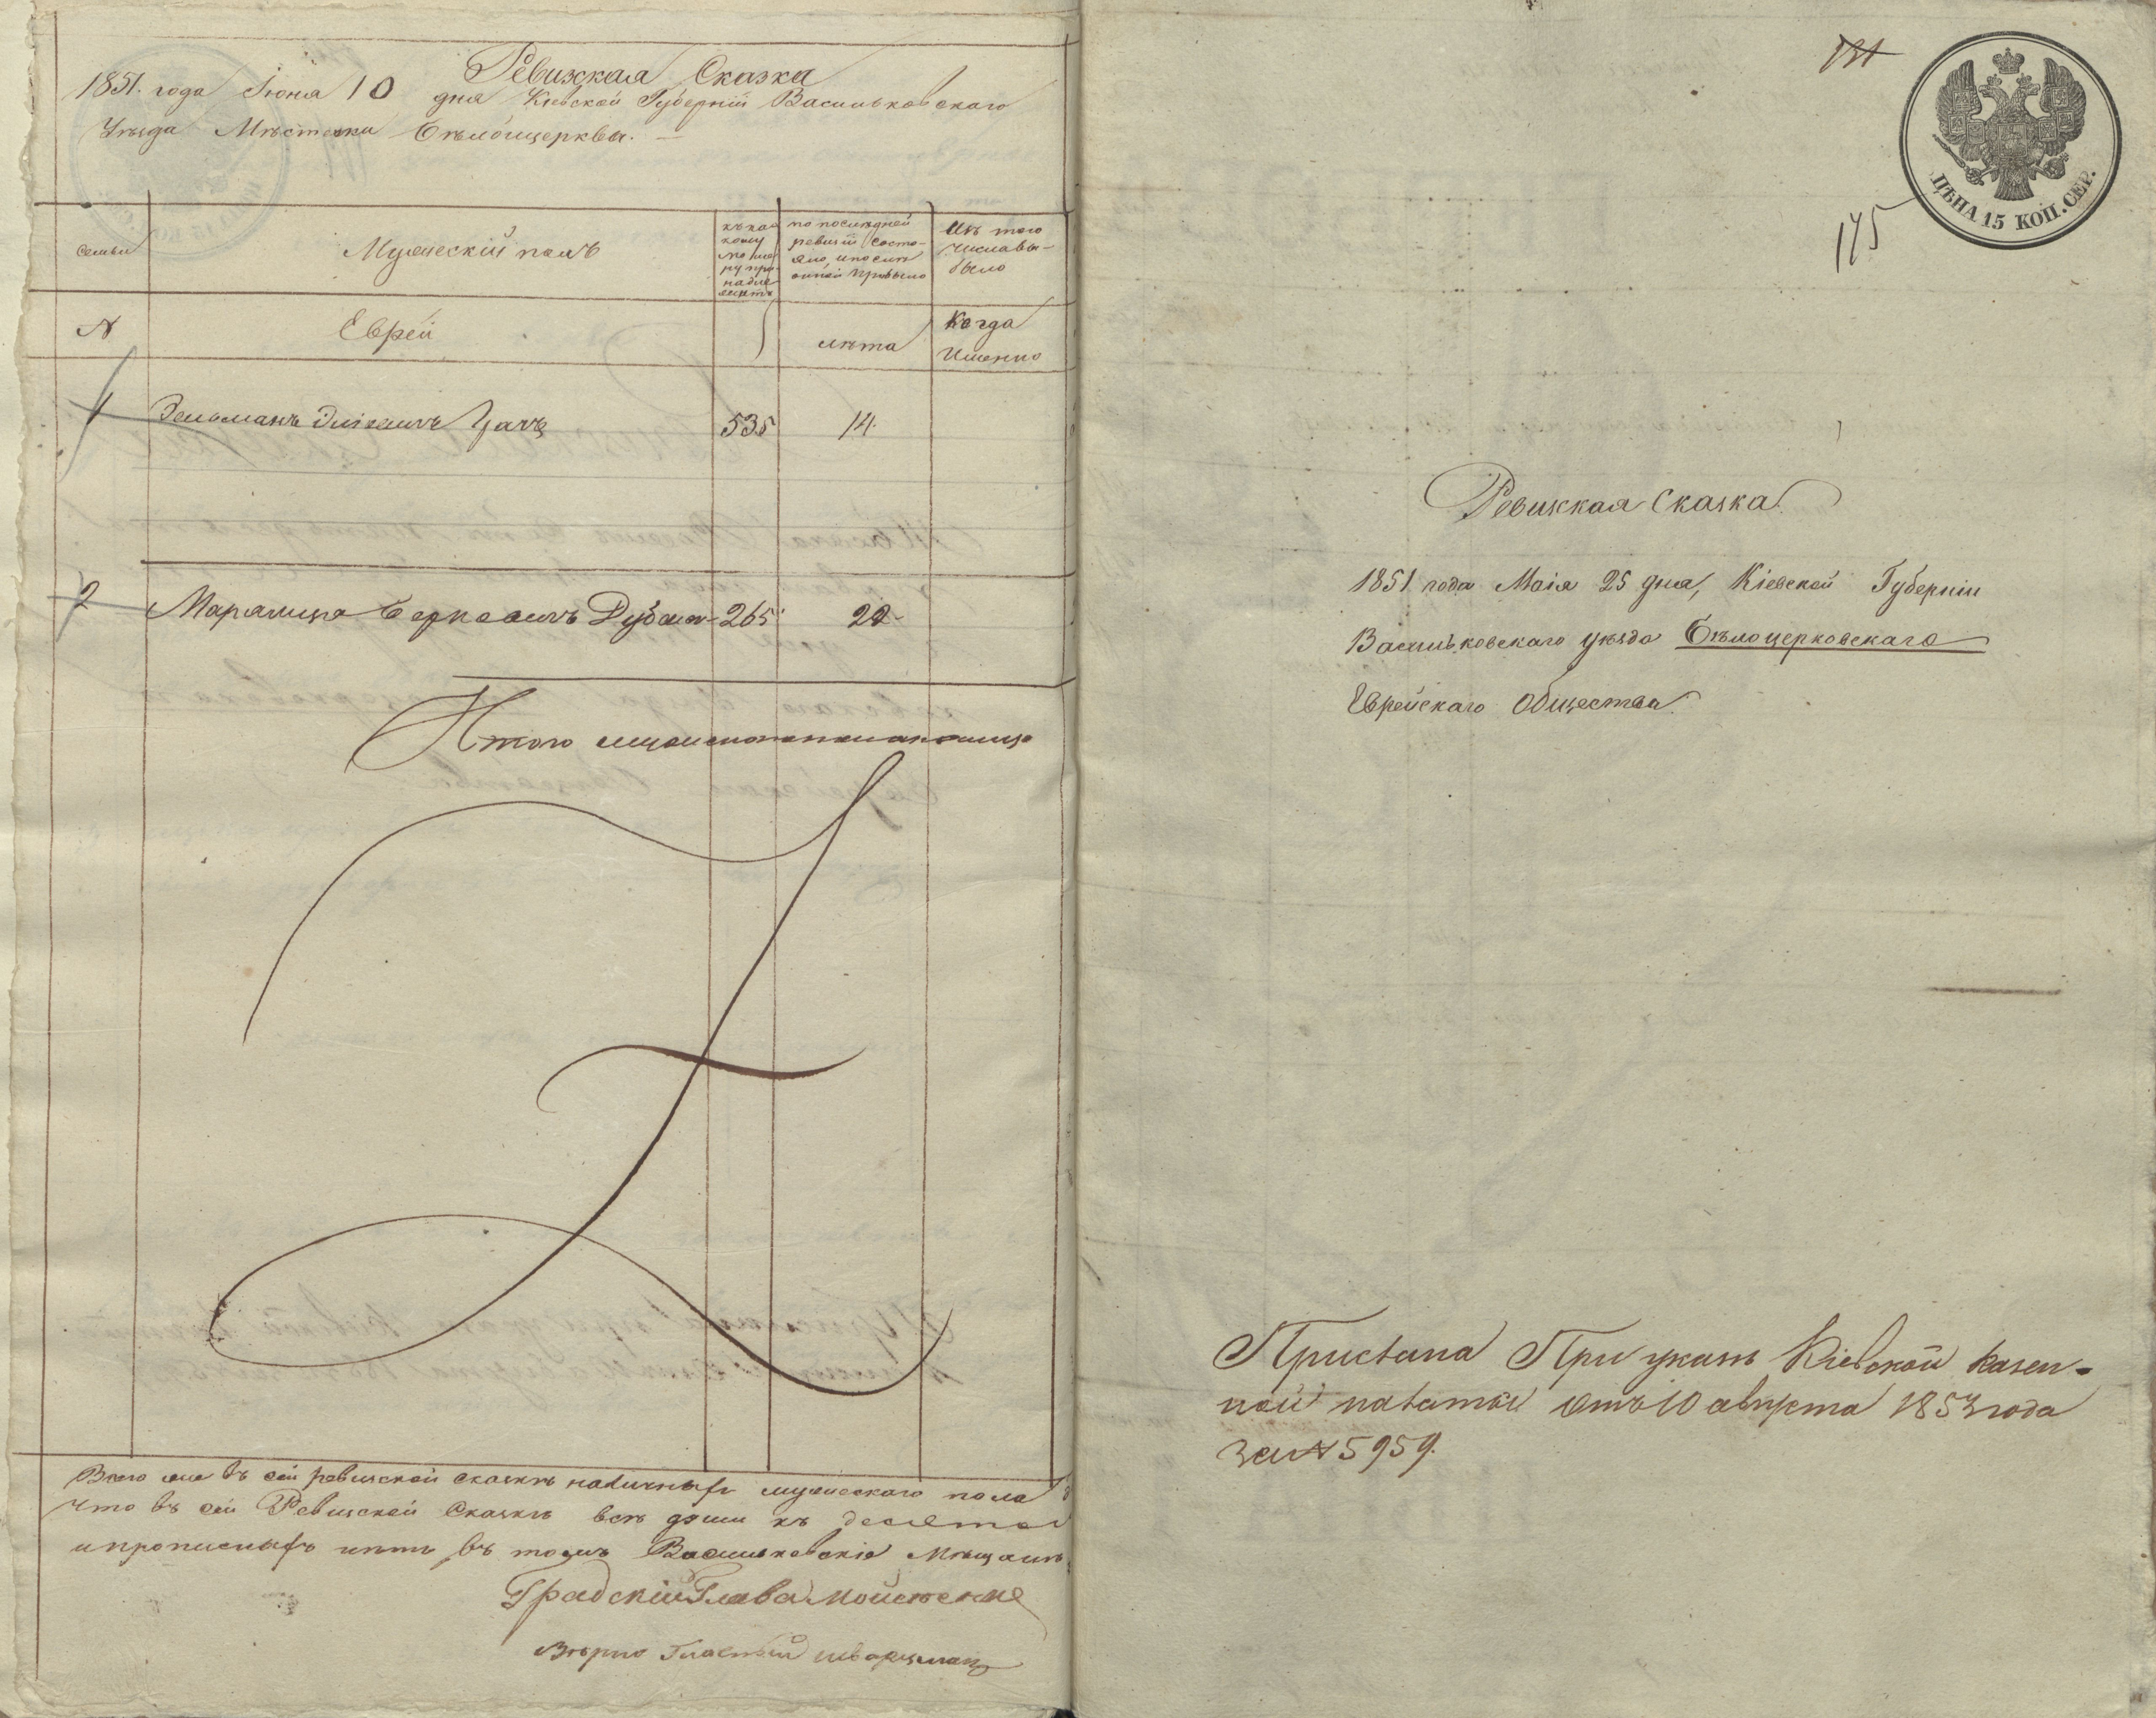 Ревизская Сказка
1851. года Июня 10 дня Киевской Губернiи Васильковскаго
Уезда Мѣстечка Бѣлойцерквы.
семьи
Мужескiй полъ
къ какому
по последней
ревизiи состо-
яло, и после
оной прибыло
Изъ того
числа вы-
было
N
Еврей
лѣта
Когда
Именно
1 535 14.
2 Берковичъ 265 22
Итого
Всего же въ сей ревизской сказкѣ наличныхъ мужескаго пола
Что въ сей Ревизской Сказкѣ всѣ души къ десятой
и прописныхъ нѣтъ въ томъ Васильковскiе Мѣщане
Градскiй Глава
Вѣрно Гласный Шварцман
131
ЦѢНА 15 КОП. СЕР.
175
Ревизкая Сказка
1851 года Маiя 25 дня, Кiевской Губернiи
Васильковскаго уѣзда Бѣлоцерковскаго
Еврейскаго Общества.
Прислана При указѣ Кiевской Казен-
ной палаты Отъ 10 августа 1853 года
за N 5959.